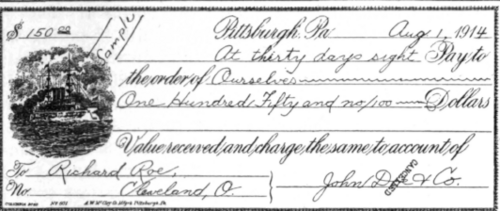 $ 150.00 Pittsburgh. Pa Aug 1, 1914
Sample
At thirty days sight Pay to
the order of Ourselves
One Hundred Fifty and no/100 Dollars
Value received and charge the same to account of
To Richard Roe, John Doe & Co.
No. Cleveland, O.